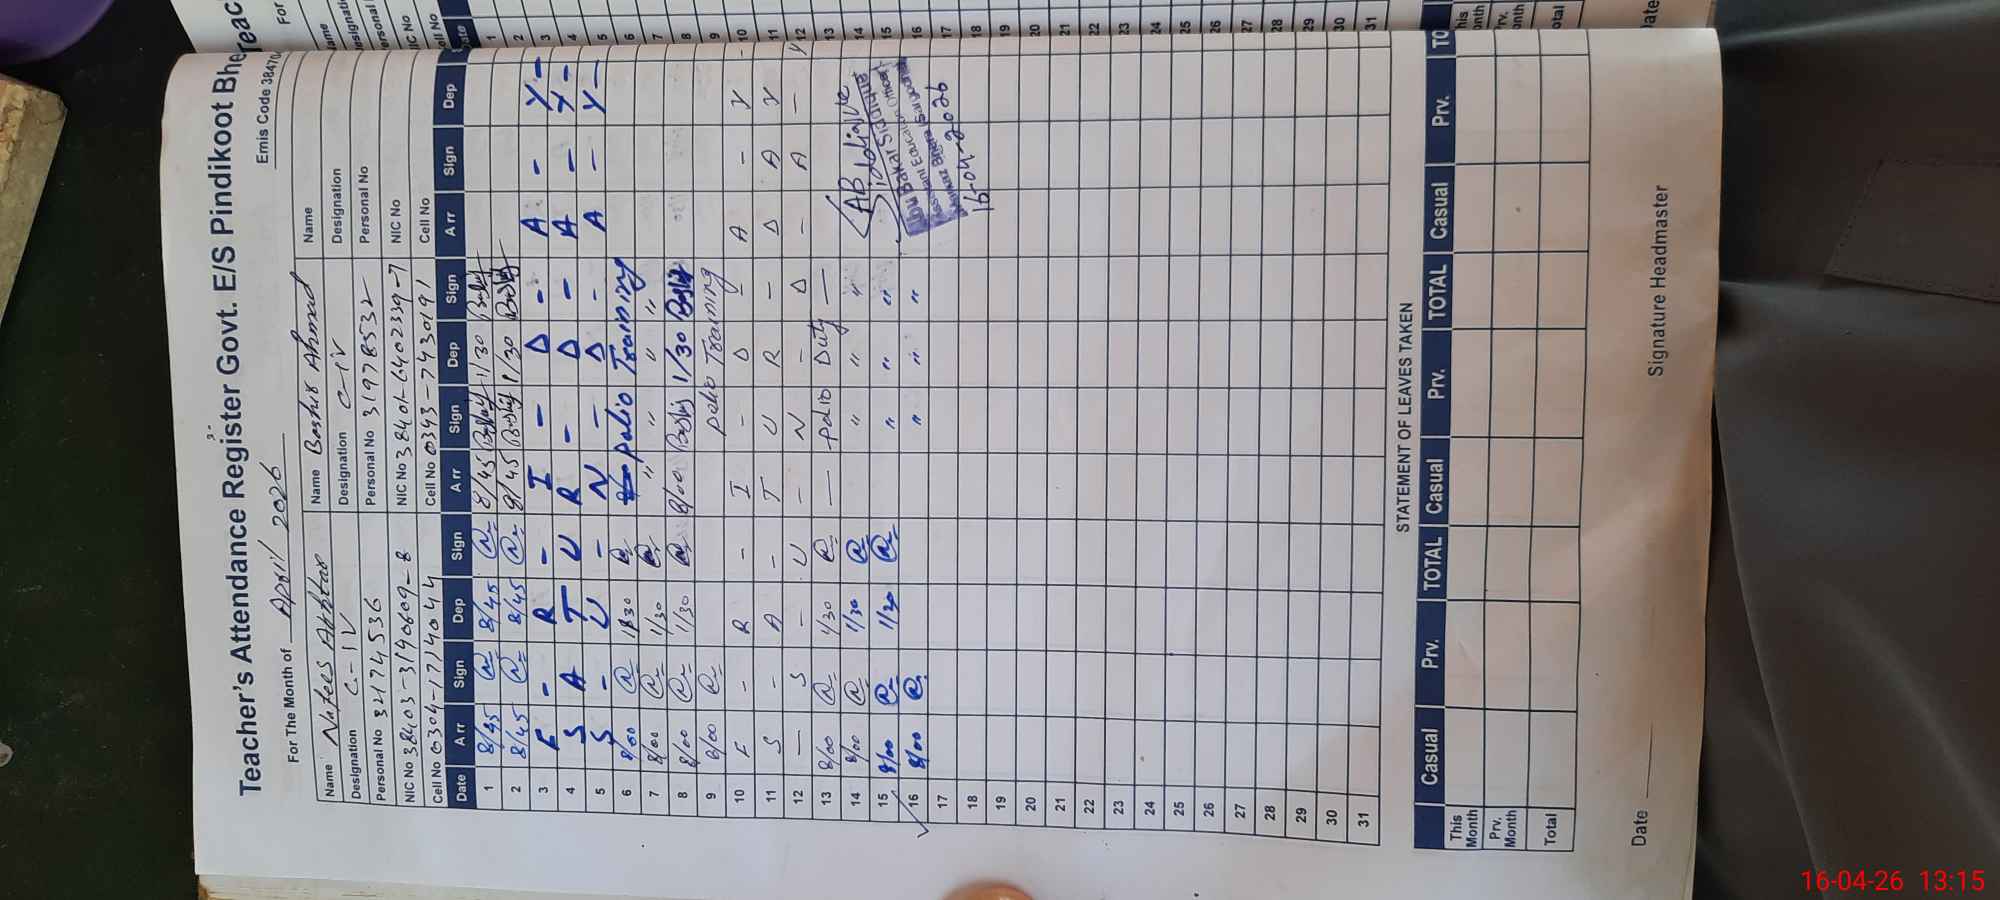 Teacher's Attendance Register Govt. E/S Pindikoot Bhe
For The Month of April 2026
Emis Code 38470
Name Nafees Akhtar Name Bashir Ahmad Name
Designation C-IV Designation C-IV Designation
Personal No 32174536 Personal No 31978532 Personal No
NIC No 38403-3190609-8 NIC No 38401-6402339-7 NIC No
Cell No 0304-1774044 Cell No 0343-7430191 Cell No
Date Arr Sign Dep Sign Arr Sign Dep Sign Arr Sign Dep
1 8/45 8/45 8/45 1/30
2 8/45 8/45 8/45 1/30
3 F - R - I - D - A - Y -
4 S A T U R - D - A - Y -
5 S - U - N - D - A - Y -
6 8/00 1/30 Polio Training
7 8/00 1/30 " " " "
8 8/00 1/30 8/00 1/30
9 8/00 Polio Training
10 F - R - I - D - A - Y -
11 S - A - T U R - D A Y
12 — S - U - N - D - A - Y
13 8/00 1/30 — Polio Duty —
14 8/00 1/30 " " "
15 8/00 1/30 " " "
16 8/00 " " "
17
18
19
20
21
22
23
24
25
26
27
28
29
30
31
AB Siddique
Abu Bakar Siddique
Assistant Education Officer
Markaz Bhera (Sargodha)
16-04-2026
STATEMENT OF LEAVES TAKEN
Casual Prv. TOTAL Casual Prv. TOTAL Casual Prv. TO
This Month
Prv. Month
Total
Date Signature Headmaster
16-04-26 13:15